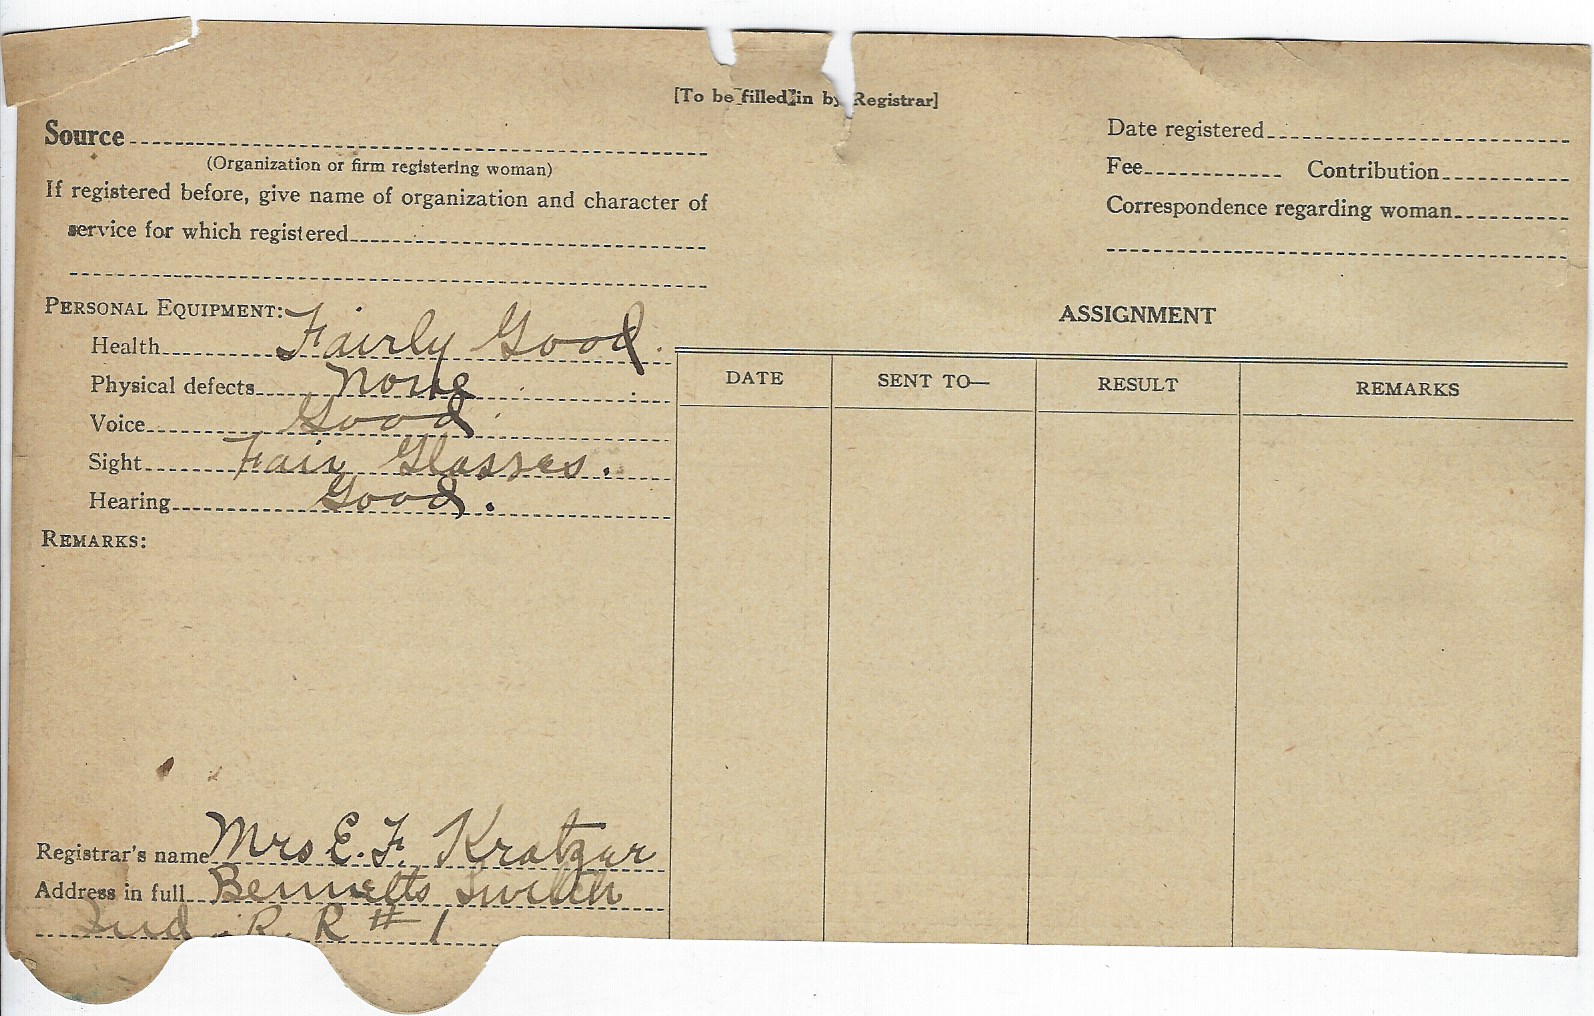 [To be filled in by Registrar]
Source
(Organization or firm registering woman)
If registered before, give name of organization and character of
service for which registered
Date registered
Fee Contribution
Correspondence regarding woman
PERSONAL EQUIPMENT:
Health Fairly Good.
Physical defects None
Voice Good
Sight Fair Glasses.
Hearing Good.
REMARKS:
ASSIGNMENT
DATE SENT TO— RESULT REMARKS
Registrar's name Mrs E. F. Kratzur
Address in full Bennetts Switch
Ind. R. R # 1